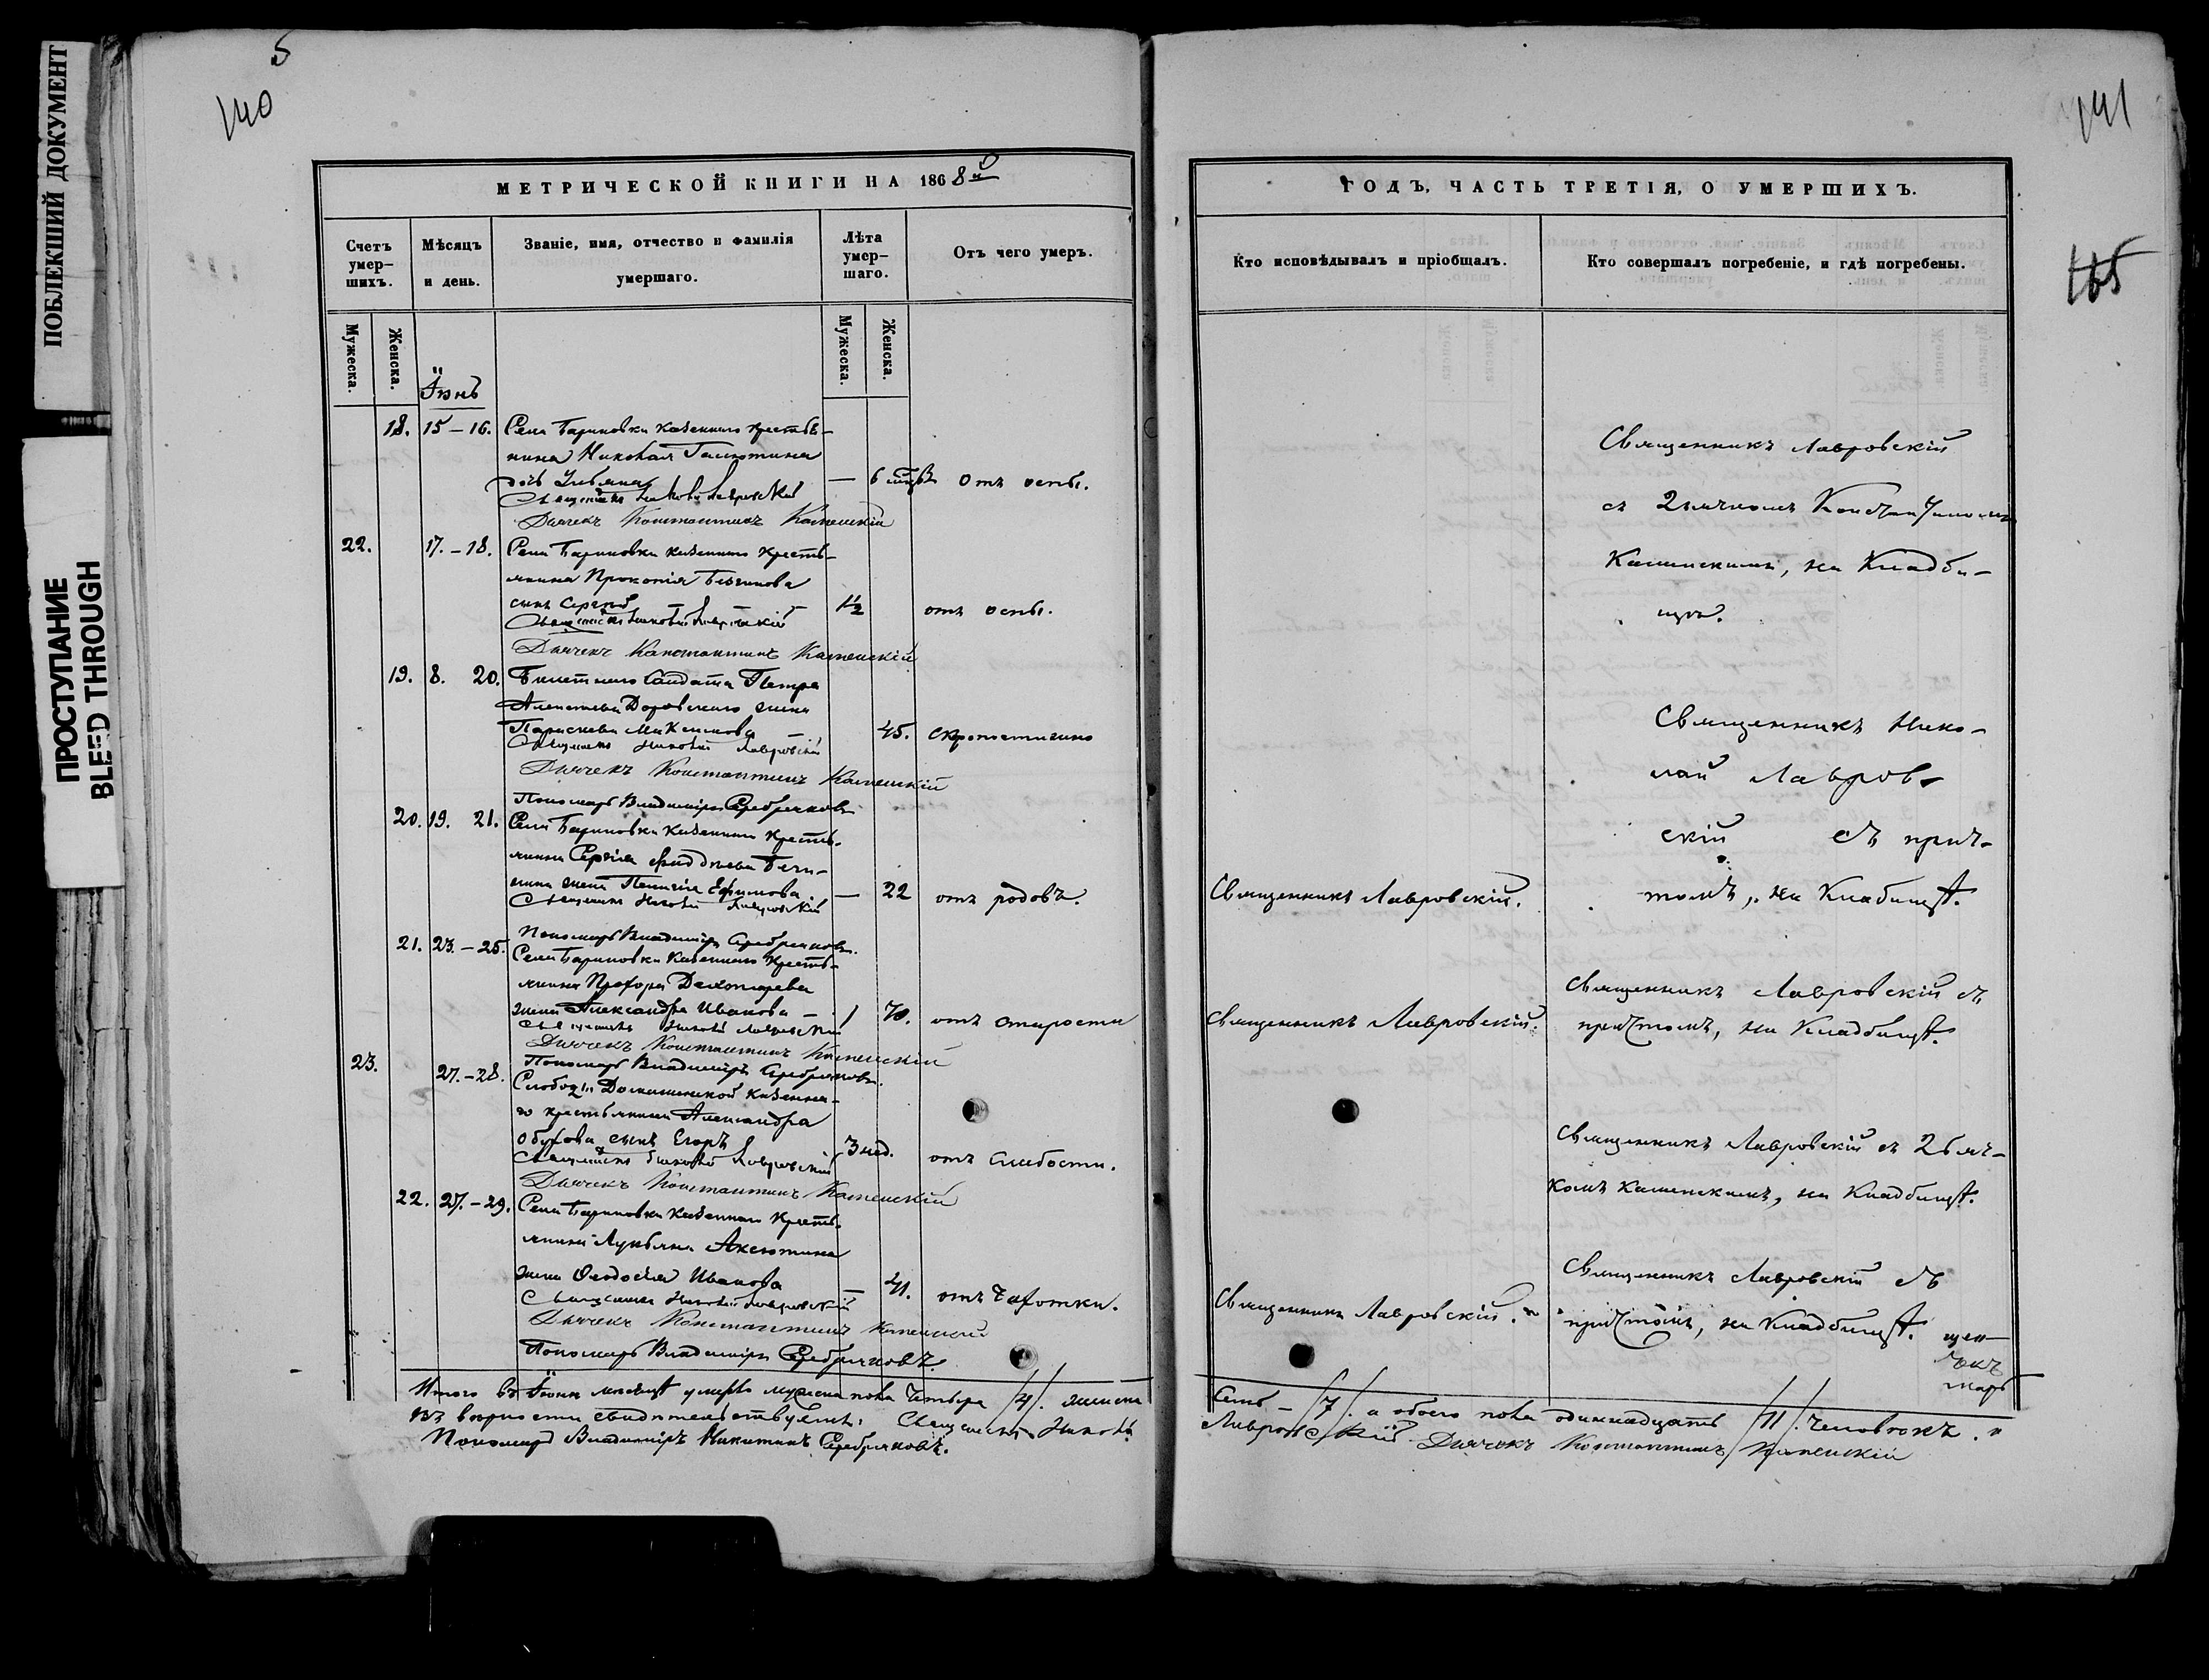 ПОБЛЕКШИЙ ДОКУМЕНТ
ПРОСТУПАНИЕ
BLEED THROUGH
5
140
МЕТРИЧЕСКОЙ КНИГИ НА 1868й
Счетъ умер-шихъ.
Мѣсяцъ и день.
Званіе, имя, отчество и фамилія умершаго.
Лѣта умер-шаго.
Отъ чего умеръ.
Мужеска.
Женска.
Мужеска.
Женска.
Іюнь
18. 15-16. Села Бариновки казеннаго крестья-
нина Николая
дочь Ульяна — 6 отъ оспы.
Священникъ Николай Лавровскій
Дьячекъ Константинъ Каменскій
22. 17.-18. Села Бариновки казеннаго кресть-
янина Прокопія
сынъ Сергѣй 1½ отъ оспы.
Священникъ Николай Лавровскій
Дьячекъ Константинъ Каменскій
19. 8. 20. Билетнаго Солдата Петра
жена
Параскева 45. скоропостижно
Священникъ Николай Лавровскій
Дьячекъ Константинъ Каменскій
Пономарь Владиміръ Серебряковъ
20. 19. 21. Села Бариновки казеннаго кресть-
янина Сергія
жена Пелагія Ефимова — 22 отъ родовъ.
Священникъ Николай Лавровскій
Пономарь Владиміръ Серебряковъ.
21. 23.-25. Села Бариновки казеннаго кресть-
янина Прохора
жена Александра Иванова — 70. отъ старости
Священникъ Николай Лавровскій
Дьячекъ Константинъ Каменскій
Пономарь Владиміръ Серебряковъ.
23. 27.-28. Слободы казенна-
го крестьянина Александра
Обухова сынъ Егоръ 3 нед. отъ слабости.
Священникъ Николай Лавровскій
Дьячекъ Константинъ Каменскій
22. 27.-29. Села Бариновки казеннаго кресть-
янина Лукьяна Аксютина
жена Ѳеодосія Иванова — 41. отъ чахотки.
Священникъ Николай Лавровскій
Дьячекъ Константинъ Каменскій
Пономарь Владиміръ Серебряковъ.
Итого въ Іюнѣ мѣсяцѣ умерло мужеска пола четыре /4/. женска
вѣрности свидѣтельствуемъ: Священникъ Николай
Пономарь Владиміръ Никитинъ Серебряковъ.
141
165
ГОДЪ, ЧАСТЬ ТРЕТІЯ, О УМЕРШИХЪ.
Кто исповѣдывалъ и пріобщалъ.
Кто совершалъ погребеніе, и гдѣ погребены.
Священникъ Лавровскій
съ Дьячкомъ Константиномъ
Каменскимъ, на Кладби-
щѣ.
Священникъ Нико-
лай Лавров-
скій съ прич-
Священникъ Лавровскій. томъ, на Кладбищѣ.
Священникъ Лавровскій съ
Священникъ Лавровскій. причтомъ, на Кладбищѣ.
Священникъ Лавровскій съ Дьяч-
комъ Каменскимъ, на Кладбищѣ.
Священникъ Лавровскій съ
Священникъ Лавровскій. причтомъ, на Кладбищѣ.
щен-
чекъ
марь
Семь - /7/. а обоего пола одиннадцать /11/. человѣкъ.
Лавровскій Дьячекъ Константинъ Каменскій